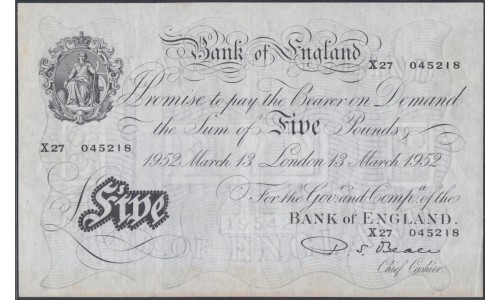 Bank of England
X27 045218
I Promise to pay the Bearer on Demand
the Sum of Five Pounds
X27 045218
1952 March 13 London 13 March 1952
For the Govr. and Compa. of the
BANK OF ENGLAND.
X27 045218
Five
Chief Cashier.